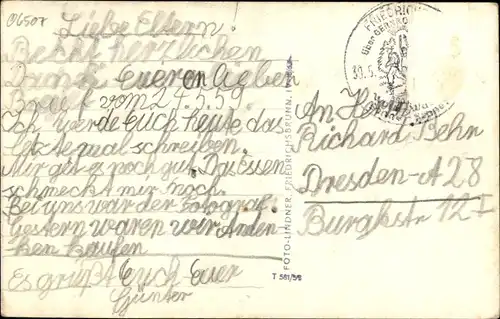 06507
Liebe Eltern!
Recht herzlichen
Dank für Eueren lieben
Brief vom 24.5.59.
Ich werde Euch heute das
letzte mal schreiben.
Mir get es noch gut. Das Essen
schmeckt mir noch.
Bei uns war der Fotograf.
Gestern waren wir Anden-
ken kaufen
Es grüßt Euch Euer
Günter
FOTO-LINDNER, FRIEDRICHSBRUNN,
T 581/59
FRIEDRICH
30.5.
An H
Richard Behn
Dresden-A 28
Burgkstr 12 I